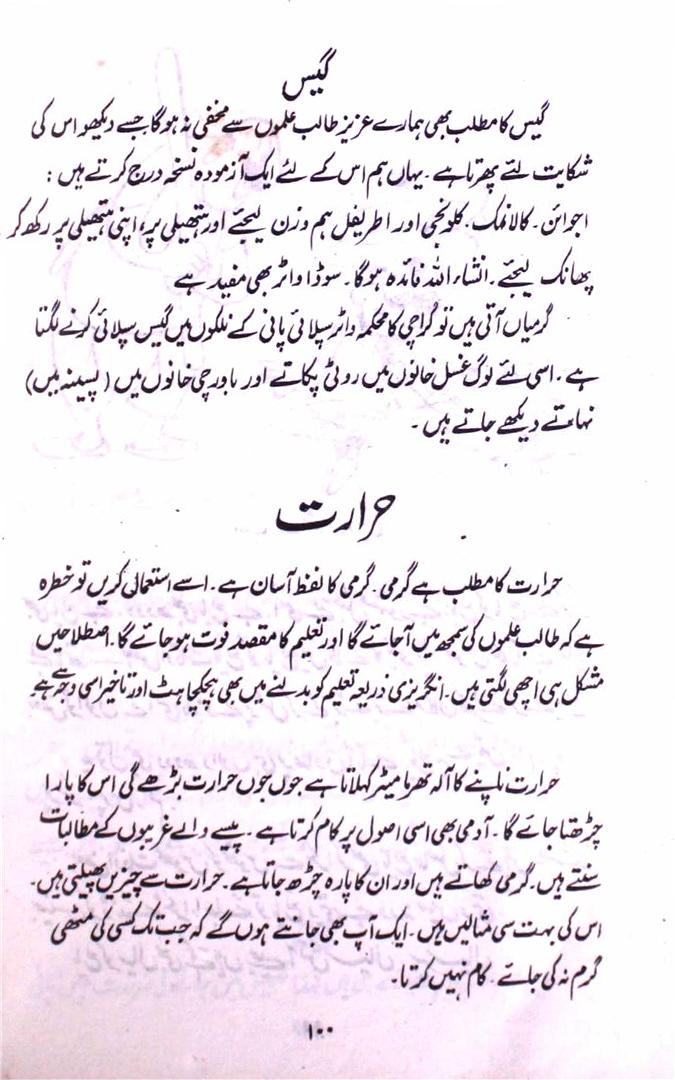 گیس
گیس کا مطلب بھی ہمارے عزیز طالب علموں سے مخفی نہ ہوگا جسے دیکھو اس کی
شکایت لئے پھرتا ہے۔ یہاں ہم اس کے لئے ایک آزمودہ نسخہ درج کرتے ہیں :
اجوائن۔ کالا نمک۔ کلونجی اور اطریفل ہم وزن لیجئے اور ہتھیلی پر، اپنی ہتھیلی پر رکھ کر
پھانک لیجئے۔ انشاء اللہ فائدہ ہوگا۔ سوڈا واٹر بھی مفید ہے
گرمیاں آتی ہیں تو کراچی کا محکمہ واٹر سپلائی پانی کے نلکوں میں گیس سپلائی کرنے لگتا
ہے۔ اسی لئے لوگ غسل خانوں میں روٹی پکاتے اور باورچی خانوں میں (پسینہ میں)
نہاتے دیکھے جاتے ہیں۔
حرارت
حرارت کا مطلب ہے گرمی۔ گرمی کا لفظ آسان ہے۔ اسے استعمال کریں تو خطرہ
ہے کہ طالب علموں کی سمجھ میں آجائے گا اور تعلیم کا مقصد فوت ہو جائے گا۔ اصطلاحیں
مشکل ہی اچھی لگتی ہیں۔ انگریزی ذریعہ تعلیم کو بدلنے میں بھی ہچکچاہٹ اور تاخیر اسی وجہ سے ہے
حرارت ناپنے کا آلہ تھرمامیٹر کہلاتا ہے جوں جوں حرارت بڑھے گی اس کا پارا
چڑھتا جائے گا۔ آدمی بھی اسی اصول پر کام کرتا ہے۔ پیسے والے غریبوں کے مطالبات
سنتے ہیں۔ گرمی کھاتے ہیں اور ان کا پارہ چڑھ جاتا ہے۔ حرارت سے چیزیں پھیلتی ہیں۔
اس کی بہت سی مثالیں ہیں۔ ایک آپ بھی جانتے ہوں گے کہ جب تک کسی کی مٹھی
گرم نہ کی جائے۔ کام نہیں کرتا۔
۱۰۰